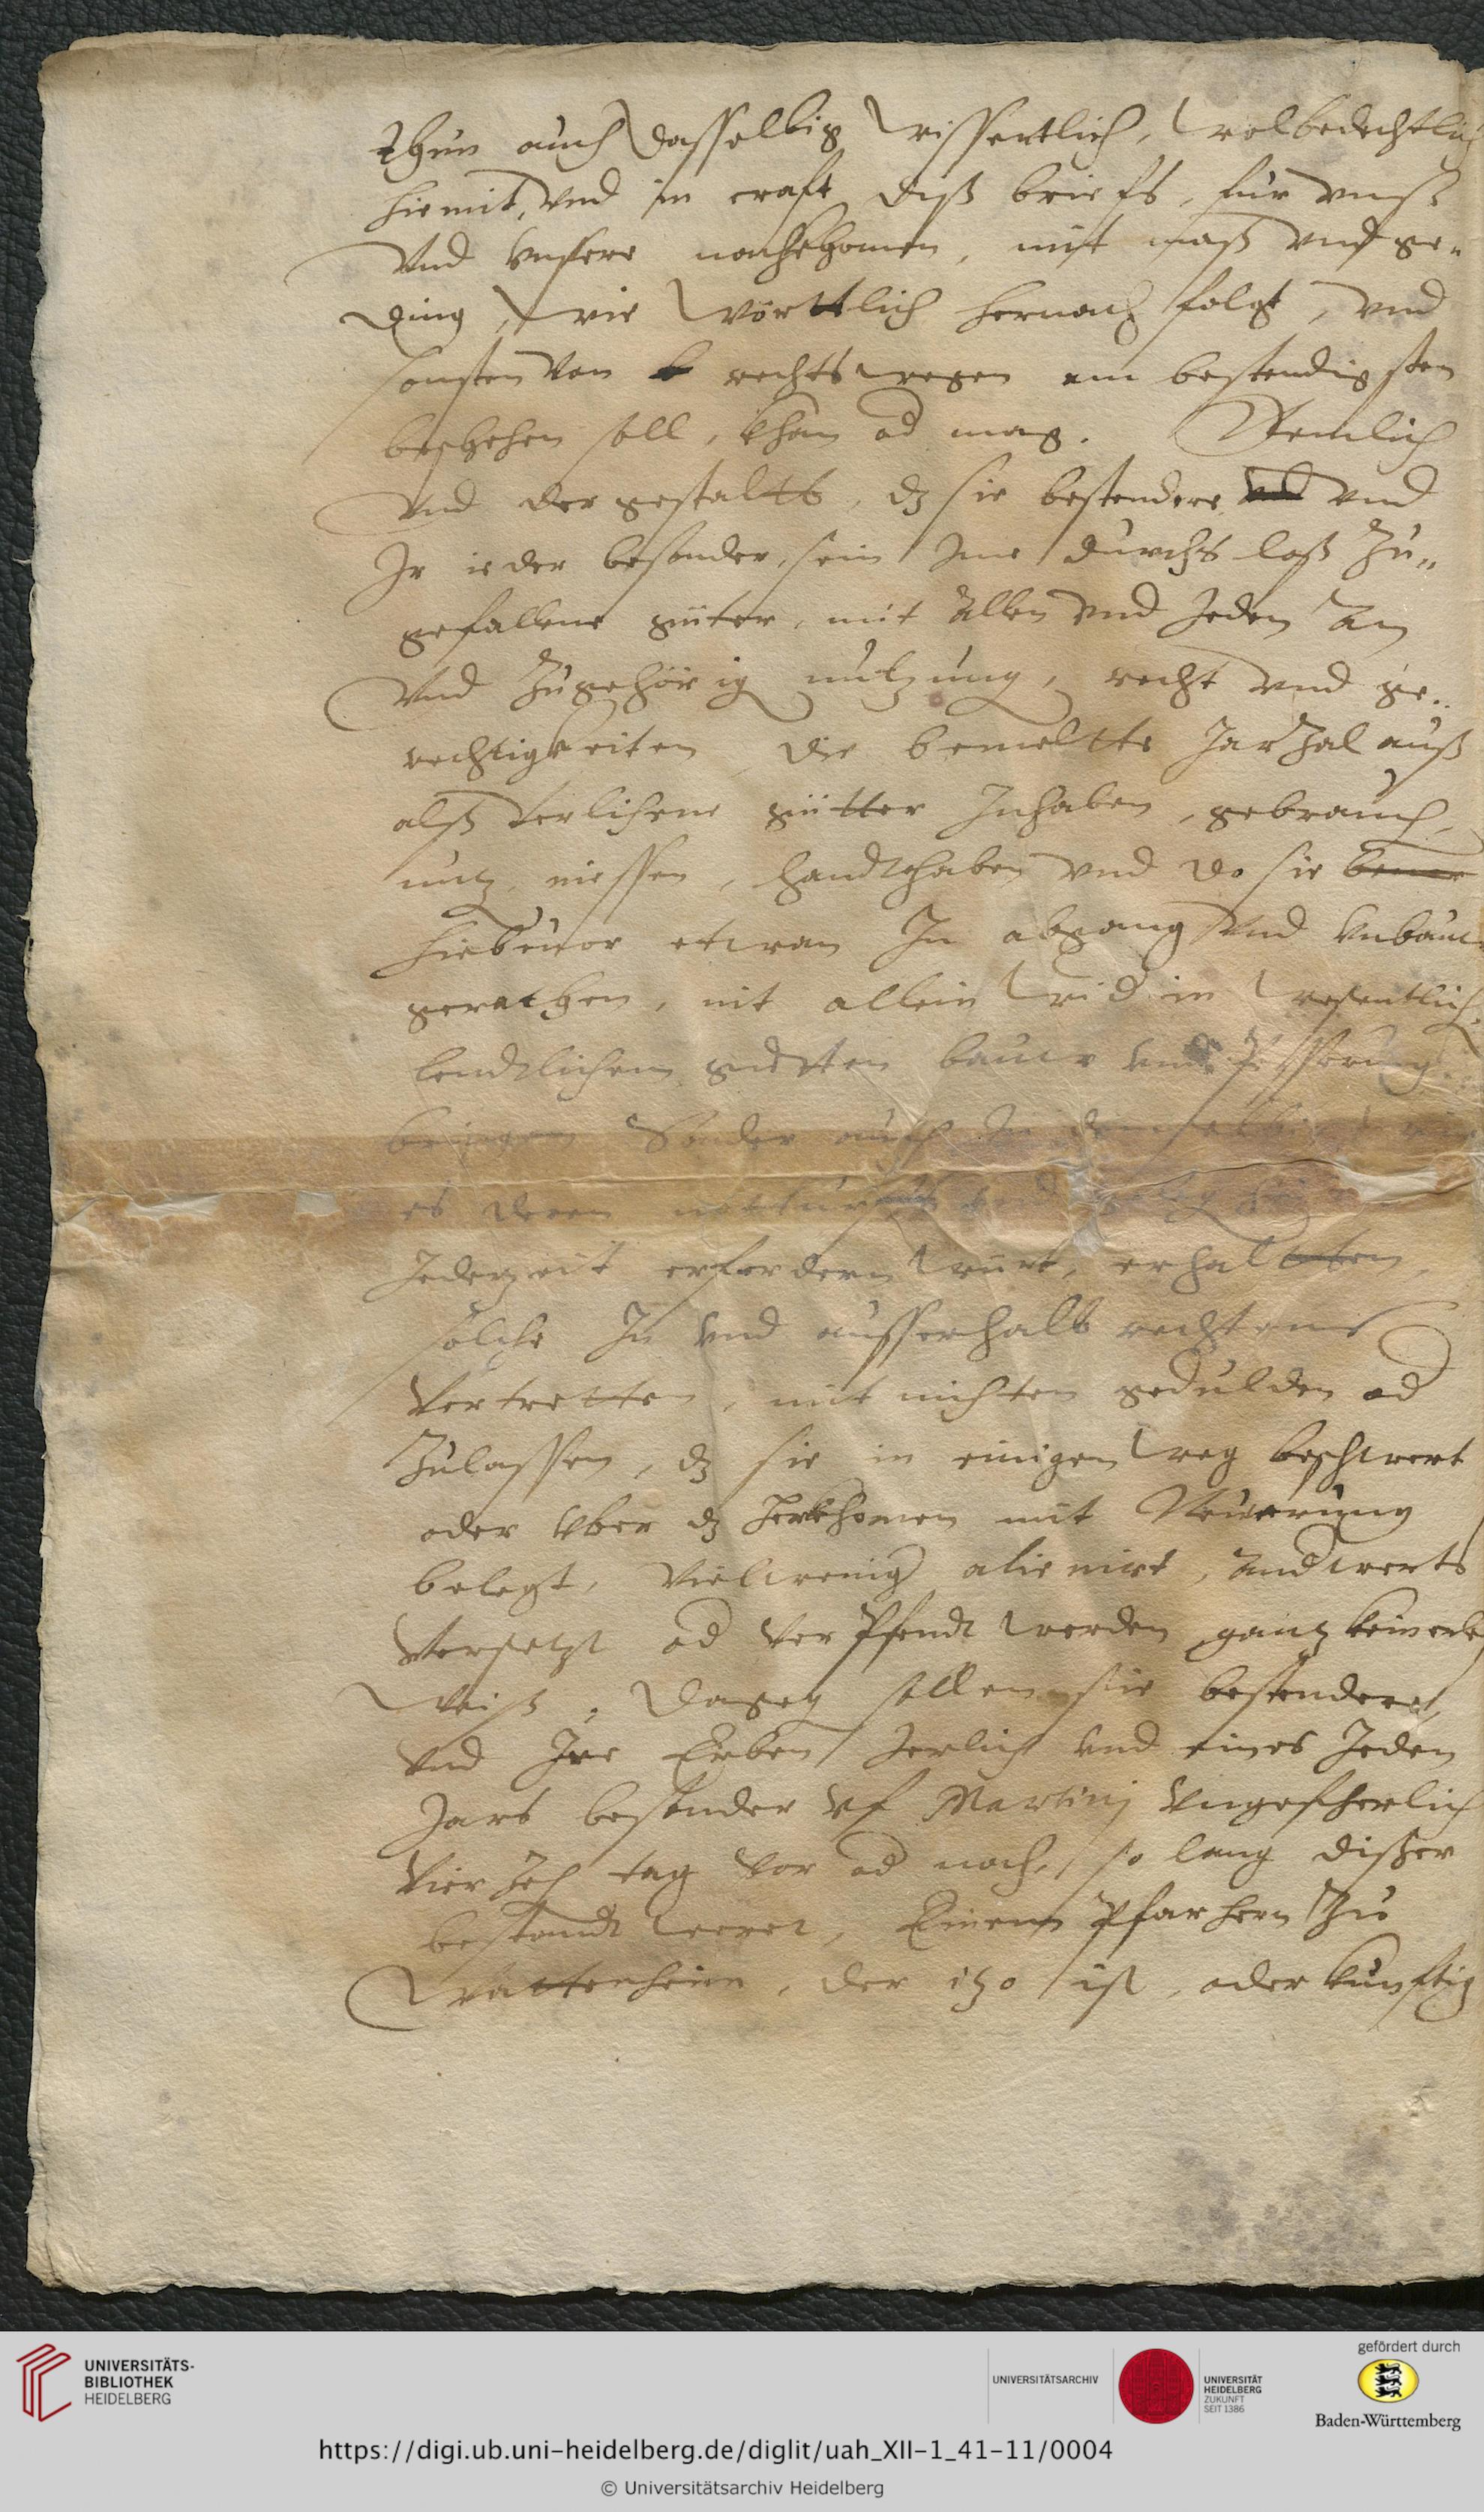 thun auch dasselbig wissentlich, wolbedechtlich
hiemit, vnd in craft diß briefs, für vnß
vnd vnsere nachkhomen, mit maß vnd ge„
ding, wie wörttlich hernach folgt, vnd
sonsten von rechts wegen am bestendigsten
beschehen soll, khan od mag. Nemlich
vnd der gestaltt, dz sie bestendere vnd
Ir ieder besonder, sein Ime durchs loß zu„
gefallene güter, mit allen vnd Jeden an
vnd zugehörig nutzung, recht vnd ge„
rechtigkeiten, die bemeltte Jarzal auß
alß verlihene gütter Inhaben, gebrauch,
nutz, niessen, handthaben vnd do sie
hiebeuor etwan In abgang vnd vnbauw
gerathen, nit allein wid in wesentlich
lendtlichem guetten bauw vnd besserung
bringen Sonder auch In demselbigen
es deren notturft vnd
Jederzeit erfordern würt, erhaltten,
solche In vnd ausserhalb rechtens
vertretten, mit nichten gedulden od
zulassen, dz sie in einigen weg beschwert
oder vber dz herkhomen mit Neuerung
belegt, vielwenig alienirt, andwerts
versetzt od verpfendt werden gantz keinerley
weiß, dageg sollen sie bestendere,
vnd Ire Erben Jerlich vnd eines Jeden
Jars besonder vf Martinj vngeferlich
vierzeh tag vor od nach, so lang dißer
bestandt weret, Einem Pfarhern zu
Wattenheim, der itzo ist, oder kunftig
UNIVERSITÄTS-
BIBLIOTHEK
HEIDELBERG
UNIVERSITÄTSARCHIV
UNIVERSITÄT
HEIDELBERG
ZUKUNFT
SEIT 1386
gefördert durch
Baden-Württemberg
https://digi.ub.uni-heidelberg.de/diglit/uah_XII-1_41-11/0004
© Universitätsarchiv Heidelberg